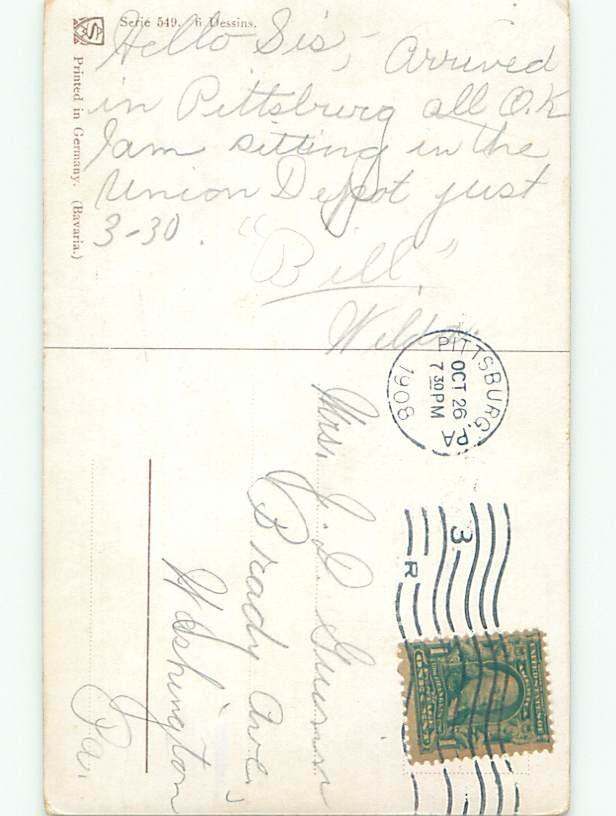 Serie 549. 6 Dessins.
Printed in Germany. (Bavaria.)
Hello Sis, Arrived
in Pittsburg all O.K
I am sitting in the
Union Depot just
3-30.
"Bill"
PITTSBURG, PA
OCT 26
7 30 PM
1908
3
R
Mrs. J. D.
Brady Ave.,
Washington
Pa.